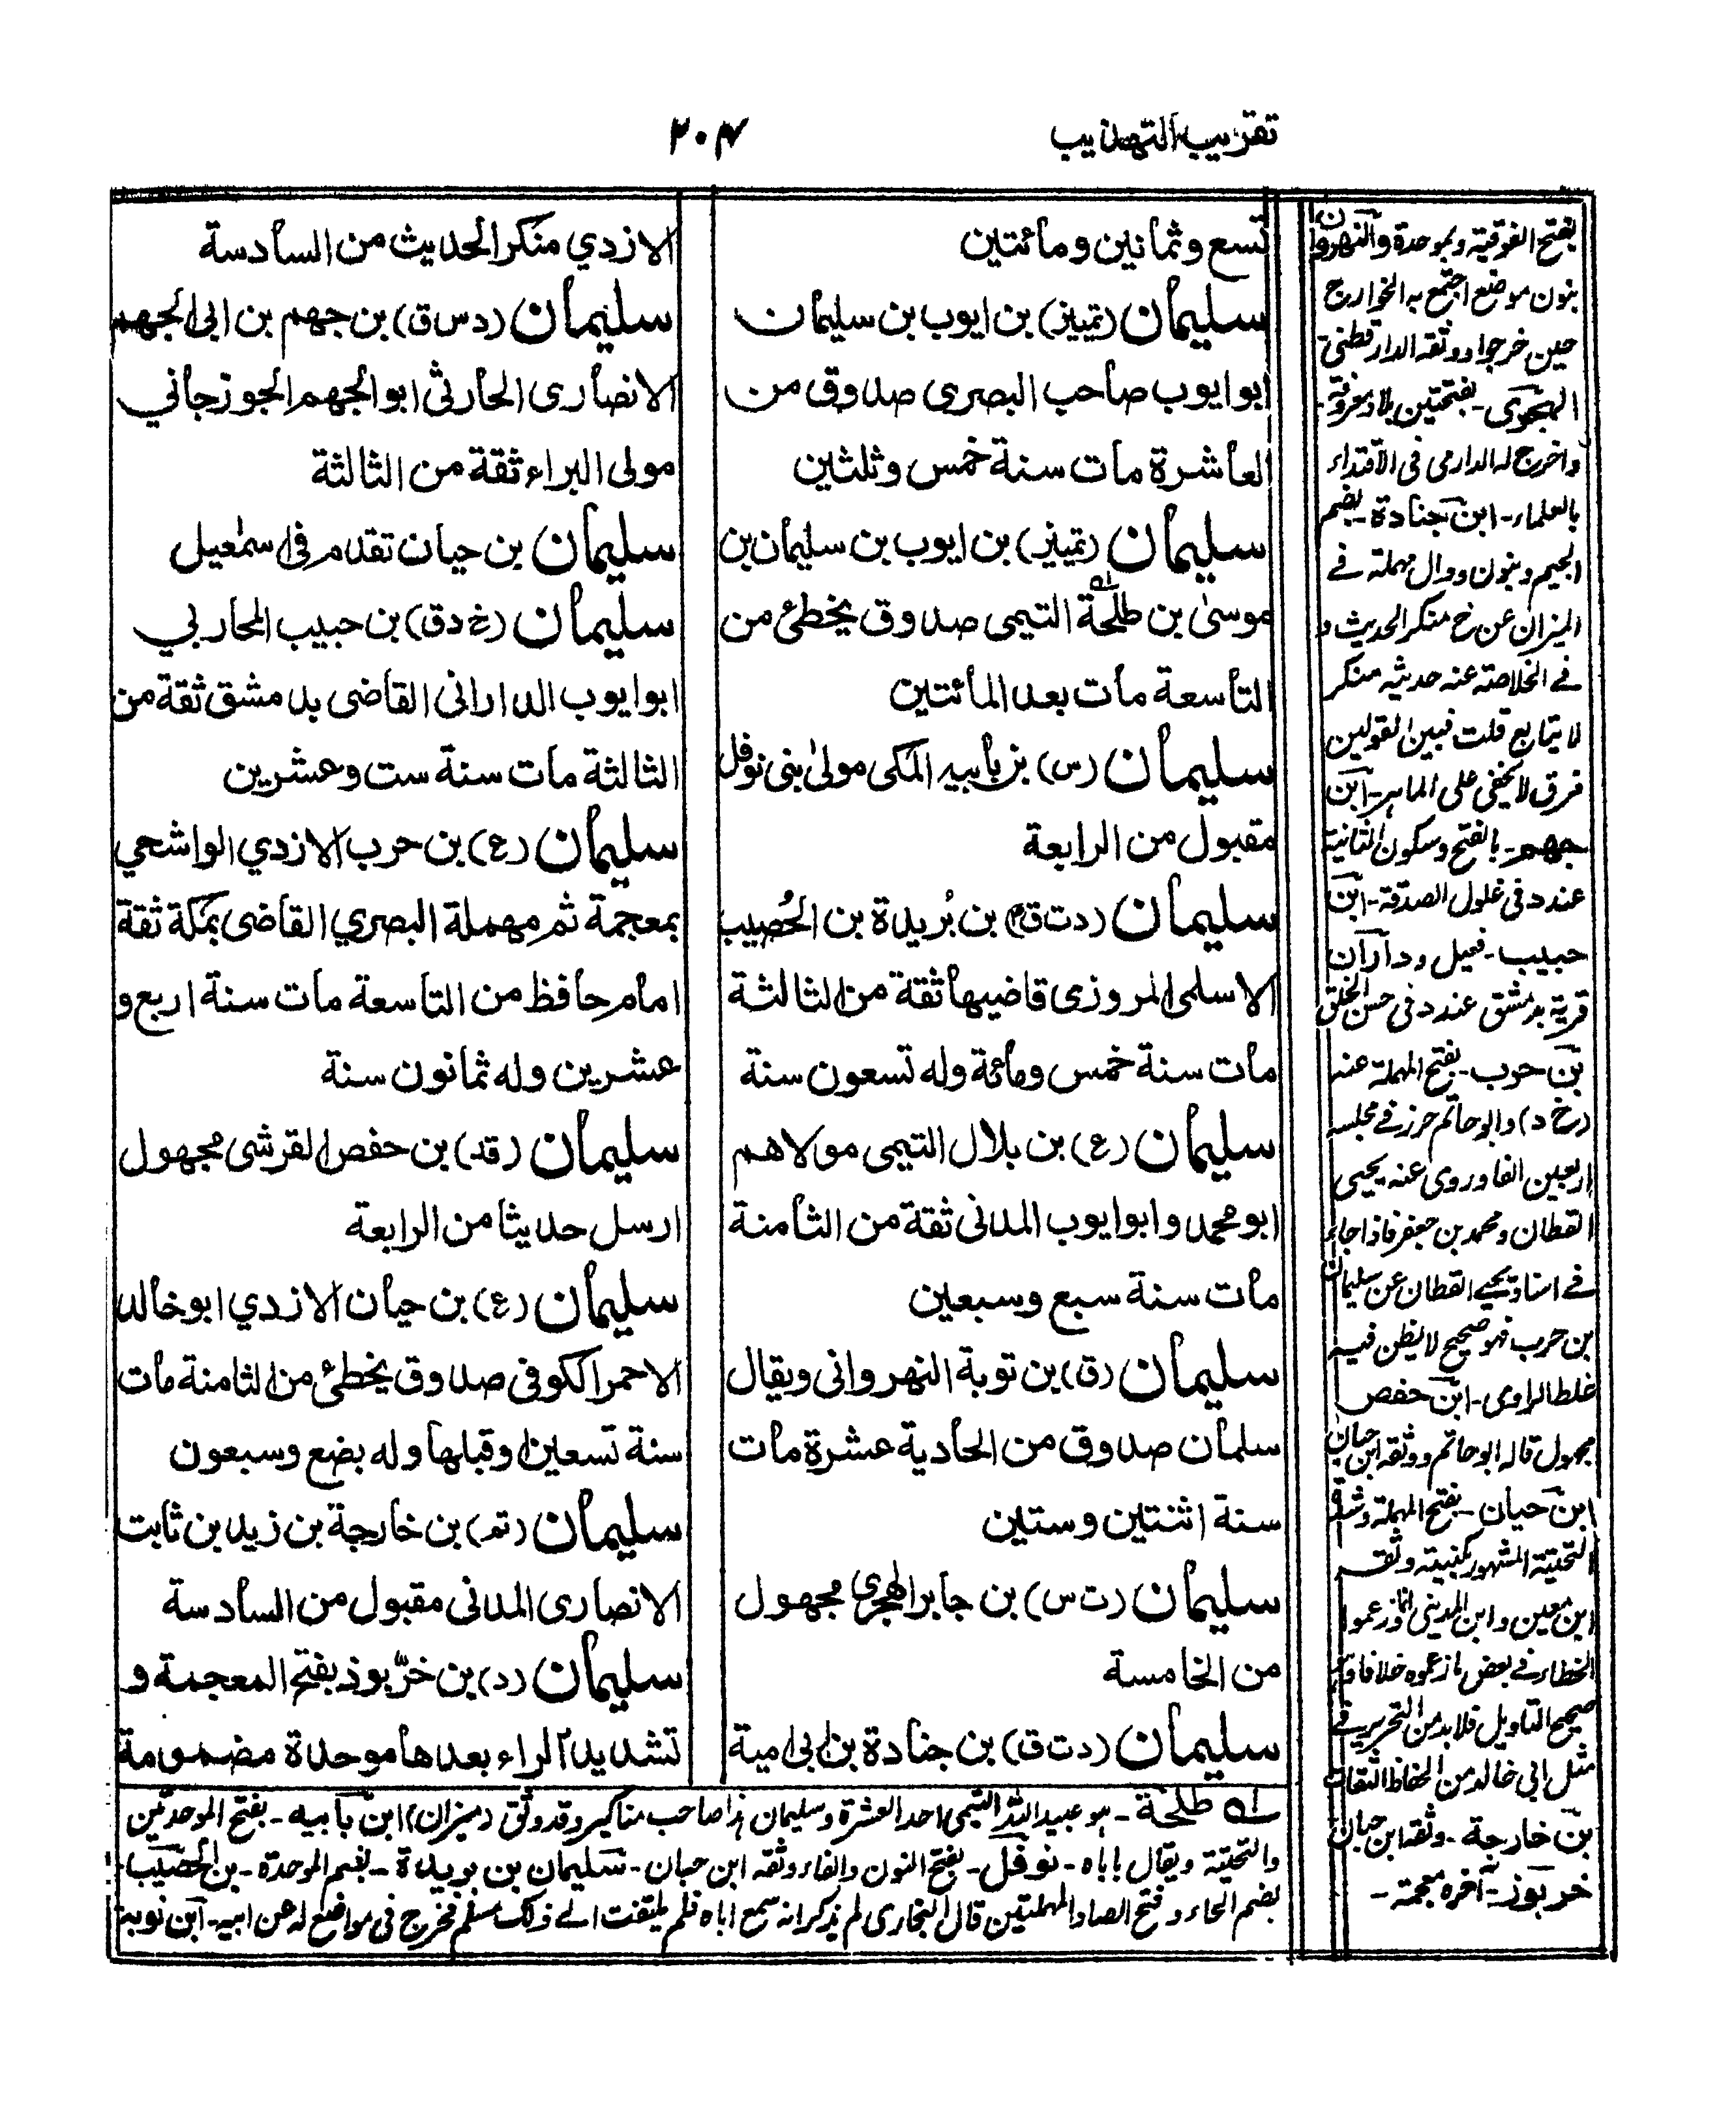 تقريب التهذيب
٢٠٤
تسع وثمانين ومائتين
سليمان (تمييز) بن ايوب بن سليمان
ابو ايوب صاحب البصرى صدوق من
العاشرة مات سنة خمس وثلثين
سليمان (تمييز) بن ايوب بن سليمان بن
موسىٰ بن طلحة التيمى صدوق يخطئ من
التاسعة مات بعد المائتين
سليمان (س) بن بابيه المكى مولىٰ بنى نوفل
مقبول من الرابعة
سليمان (دت ق) بن بُريدة بن الحُصيب
الاسلمى المروزى قاضيها ثقة من الثالثة
مات سنة خمس ومائة وله تسعون سنة
سليمان (ع) بن بلال التيمى مولاهم
ابو محمد وابو ايوب المدنى ثقة من الثامنة
مات سنة سبع وسبعين
سليمان (ق) بن توبة النهروانى ويقال
سلمان صدوق من الحادية عشرة مات
سنة اثنتين وستين
سليمان (ت س) بن جابر الهجرى مجهول
من الخامسة
سليمان (دت ق) بن جنادة بن ابى امية
الازدي منكر الحديث من السادسة
سليمان (د س ق) بن جهم بن ابى الجهم
الانصارى الحارثى ابو الجهم الجوزجاني
مولى البراء ثقة من الثالثة
سليمان بن حيان تقدم فى اسمٰعيل
سليمان (خ دق) بن حبيب المحاربي
ابو ايوب الدارانى القاضى بدمشق ثقة من
الثالثة مات سنة ست وعشرين
سليمان (ع) بن حرب الازدي الواشحي
بمعجمة ثم مهملة البصري القاضى بمكة ثقة
امام حافظ من التاسعة مات سنة اربع و
عشرين وله ثمانون سنة
سليمان (قد) بن حفص القرشى مجهول
ارسل حديثا من الرابعة
سليمان (ع) بن حيان الازدي ابو خالد
الاحمر الكوفى صدوق يخطئ من الثامنة مات
سنة تسعين او قبلها وله بضع وسبعون
سليمان (تم) بن خارجة بن زيد بن ثابت
الانصارى المدنى مقبول من السادسة
سليمان (د) بن خرّبوذ بفتح المعجمة و
تشديد الراء بعدها موحدة مضمومة
بفتح الفوقية وبموحدة والنهروان
بنون موضع اجتمع به الخوارج
حين خرجوا ووثقه الدارقطنى
الهجرى - بفتحتين بلاد معروفة
واخرج له الدارمى فى الاقتداء
بالعلماء - ابن جنادة - بضم
الجيم وبنون ودال مهملة فے
الميزان عن خ منكر الحديث و
فے الخلاصة عنه حديثه منكر
لا يتابع قلت فبين القولين
فرق لا يخفى على الماهر - ابن
جهم - بالفتح وسكون الثانية
عند د فى غلول الصدقة - ابن
حبيب - فعيل وداران
قرية بدمشق عند د فى حسن الخلق
بن حرب - بفتح المهملة عنه
(خ د) وابو حاتم حزر فے مجلسه
اربعين الفا وروى عنه يحيى
القطان ومحمد بن جعفر فاذا جاء
فے اسناد يحيے القطان عن سليمان
بن حرب فهو صحيح لا يظن فيه
غلط الراوى - ابن حفص
مجهول قاله ابو حاتم ووثقه ابن حبان
ابن حيان - بفتح المهملة وشدة
التحتية المشهور بكنيته وثقه
ابن معين وابن المدينى
الخطاء فے بعض ما زعموه خلافا
صحيح التاويل فلا بد من التحرير فے
مثل ابى خالد من الحفاظ الثقات
بن خارجة - وثقه ابن حبان
خربوذ - آخره معجمة -
له طلحة - هو عبيد الله التيمى احد العشرة وسليمان هذا صاحب مناكير وقد وثق (ميزان) ابن بابيه - بفتح الموحدتين
والتحتية ويقال باباه - نوفل - بفتح النون والفاء وثقه ابن حبان - سليمان بن بريدة - بضم الموحدة - بن الحصيب
بضم الحاء وفتح الصاد المهملتين قال البخارى لم يذكر انه سمع اباه فلم يلتفت الے ذلك مسلم فخرج فى مواضع له عن ابيه - ابن توبة